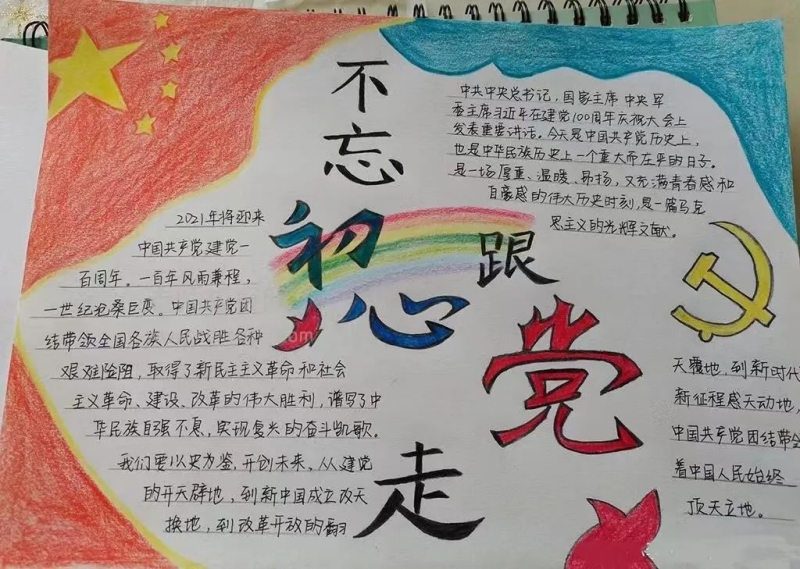 不
忘
初心
跟
党
走
中共中央总书记，国家主席 中央军
委主席习近平在建党100周年庆祝大会上
发表重要讲话。今天是中国共产党历史上，
也是中华民族历史上一个重大而庄严的日子。
是一场厚重、温暖、昂扬，又充满青春感和
自豪感的伟大历史时刻，是一篇马克
思主义的光辉文献。
2021年将迎来
中国共产党建党一
百周年。一百年风雨兼程，
一世纪沧桑巨变。中国共产党团
结带领全国各族人民战胜各种
艰难险阻，取得了新民主主义革命和社会
主义革命、建设、改革的伟大胜利，谱写了中
华民族自强不息，实现复兴的奋斗凯歌。
我们要以史为鉴，开创未来、从建党
的开天辟地，到新中国成立改天
换地，到改革开放的翻
天覆地，到新时代
新征程感天动地，
中国共产党团结带全
着中国人民始终
顶天立地。